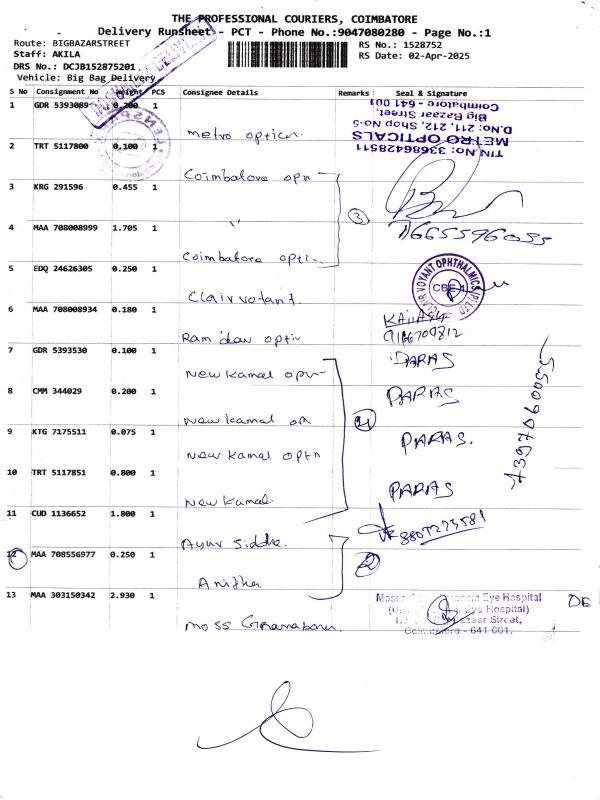 THE PROFESSIONAL COURIERS, COIMBATORE
Delivery Runsheet - PCT - Phone No.:9047080280 - Page No.:1
Route: BIGBAZARSTREET
RS No.: 1528752
Staff: AKILA
RS Date: 02-Apr-2025
DRS No.: DCJB152875201
Vehicle: Big Bag Delivery
S No Consignment No Weight PCS Consignee Details Remarks Seal & Signature
1 GDR 5393089 0.200 1 metro optica
TIN No: 33686428511
METRO OPTICALS
D.No: 211, 212, Shop No-5
Big Bazaar Street,
Coimbatore - 641 001
2 TRT 5117800 0.100 1 Coimbatore opn
3 KRG 291596 0.455 1 "
3
4 MAA 708008999 1.705 1 Coimbatore opti
7665596055
5 EDQ 24626305 0.250 1 Clair votant
CLAIR VOYANT OPHTHALMICS (P) LTD
CBE-1
6 MAA 708008934 0.180 1 Ram dev optiv
9166709812
7 GDR 5393530 0.100 1 New Kamal opn
PARAS
8 CMM 344029 0.200 1 New kamal on
PARAS
4
9 KTG 7175511 0.075 1 New kamal optn
PARAS.
7397060055
10 TRT 5117851 0.800 1 New Kamal
PARAS
11 CUD 1136652 1.800 1 Ayur Siddha.
8807223581
12 MAA 708556977 0.250 1 Anitha
2
13 MAA 303150342 2.930 1 moss
Eye Hospital
Eye Hospital)
Bazaar Street,
Coimbatore - 641 001.
DE